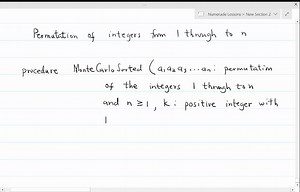 Homemade Lessons > New Section 2
Permutation of integers from 1 through to n
procedure MonteCarloSorted (a₁a₂a₃...aₙ: permutation
of the integers 1 through to n
and n ≥ 1, k: positive integer with
1